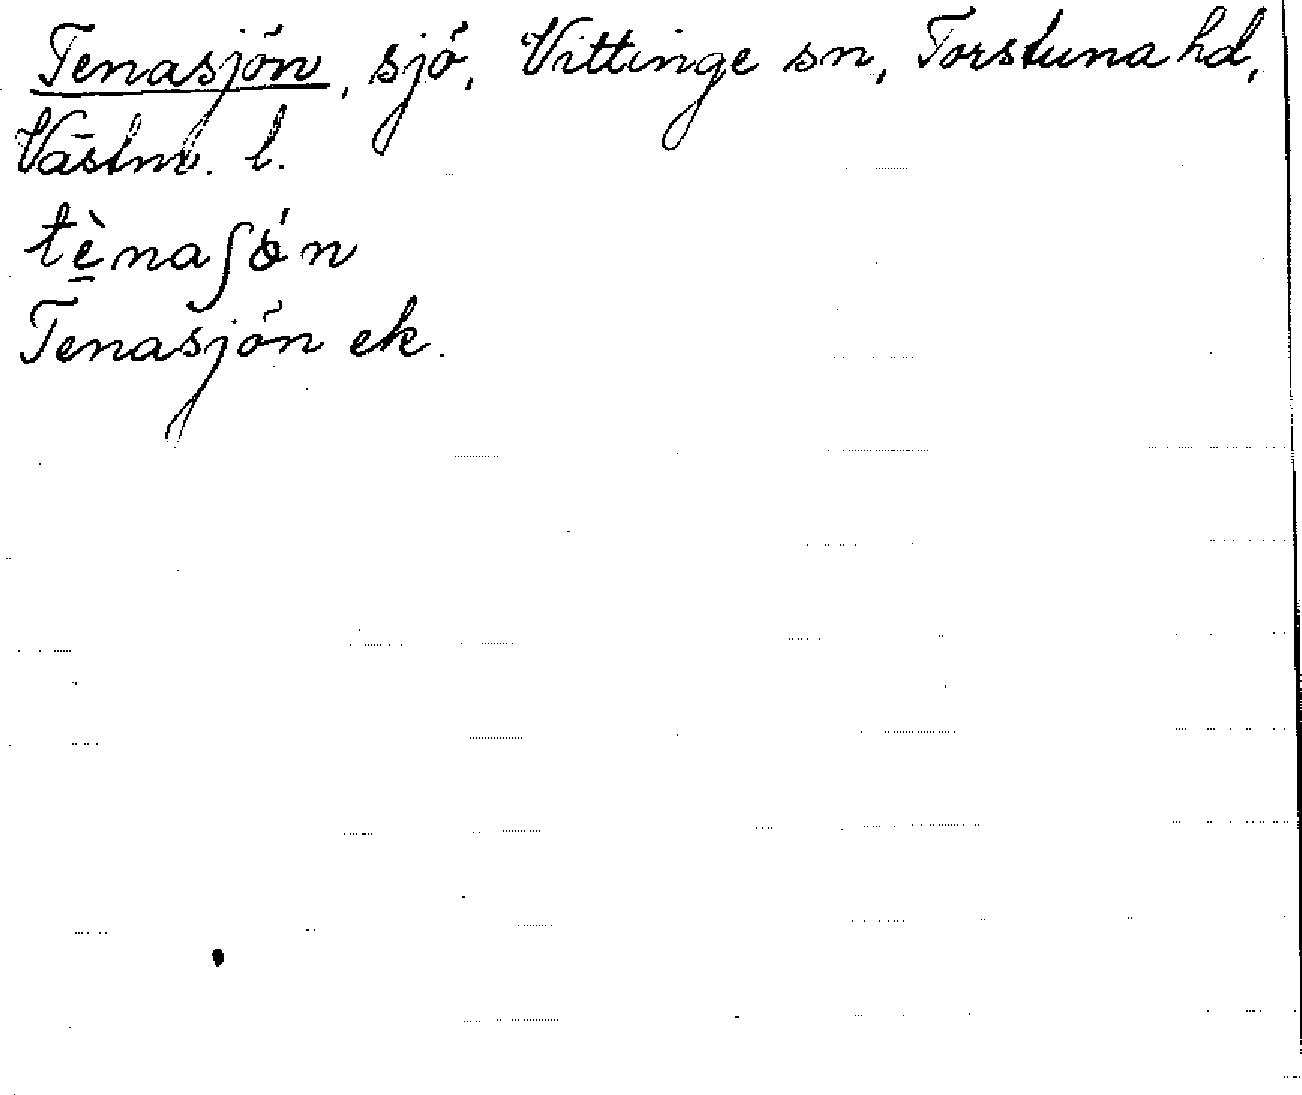 Tenasjön, sjö, Vittinge sn, Torstuna hd,
Västm. l.
tè̱naʃǿn
Tenasjön ek.